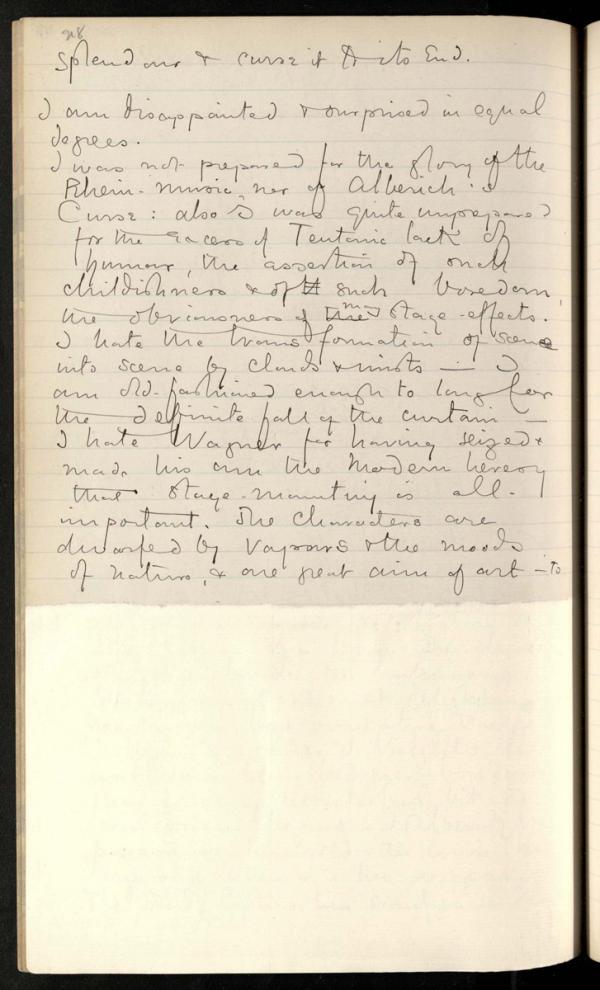 218
splendour & curse it to its End.
I am disappointed & surprised in equal
degrees.
I was not prepared for the glory of the
Rhein-music, nor of Alberich's
Curse: also I was quite unprepared
for the excess of Teutonic lack of
humour, the assertion of such
childishness & of such boredom,
the obviousness of the stage-effects.
I hate the transformation of scene
into scene by clouds & mists — I
am old-fashioned enough to long for
the definite fall of the curtain —
I hate Wagner for having seized &
made his own the Modern heresy
that stage-mounting is all-
important. The characters are
dwarfed by vapours & the moods
of nature, & one great aim of art — to